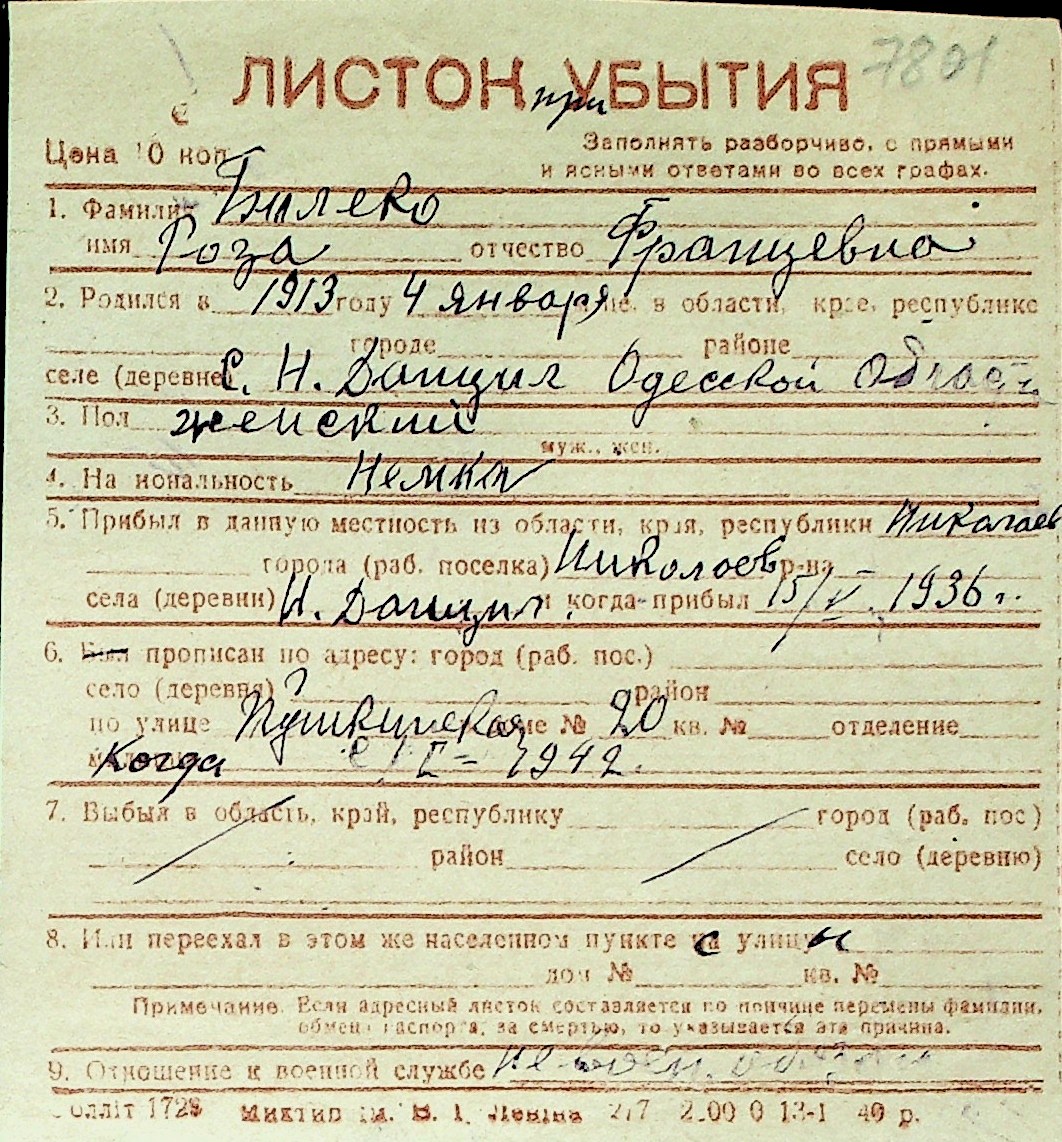 7801
ЛИСТОК при УБЫТИЯ
Цена 10 коп.
Заполнять разборчиво, с прямыми
и ясными ответами во всех графах.
1. Фамилия Билеко
имя Роза отчество Францевна
2. Родился в 1913 году 4 января в области, крае, республике
городе районе
селе (деревне) с. Н. Данциг Одесской области
3. Пол женский
муж., жен.
4. Национальность Немка
5. Прибыл в данную местность из области, края, республики Николаев
города (раб. поселка) Николаев р-на
села (деревни) Н. Данциг и когда прибыл 15/V 1936 г.
6. Был прописан по адресу: город (раб. пос.)
село (деревня) район
по улице Пушкинская доме № 20 кв. № отделение
Когда 1942.
7. Выбыл в область, край, республику город (раб. пос)
район село (деревню)
8. Или переехал в этом же населенном пункте с улицы
дом № кв. №
Примечание. Если адресный листок составляется по причине перемены фамилии,
обмена паспорта, за смертью, то указывается эта причина.
9. Отношение к военной службе не
1728 им. В. І. Леніна 2.00 0 13-1 40 р.